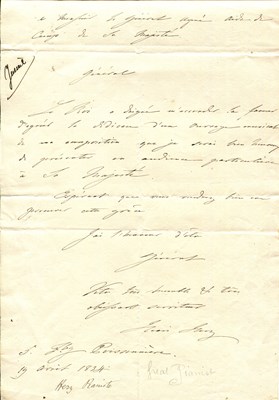 a Monsieur le Général Aide de
Camp de Sa Majesté
Général
Le Roi a daigné m'accorder la faveur
d'agréer la dédicace d'un ouvrage musical
de ma composition que je serais très heureux
de présenter en audience particulière
à Sa Majesté
Espérant que vous voudrez bien en
cette grâce
J'ai l'honneur d'être
Général
Votre très humble et très
obéissant serviteur
Henri Herz
Poissonnière.
19 avril
Herz Henri
Pianist